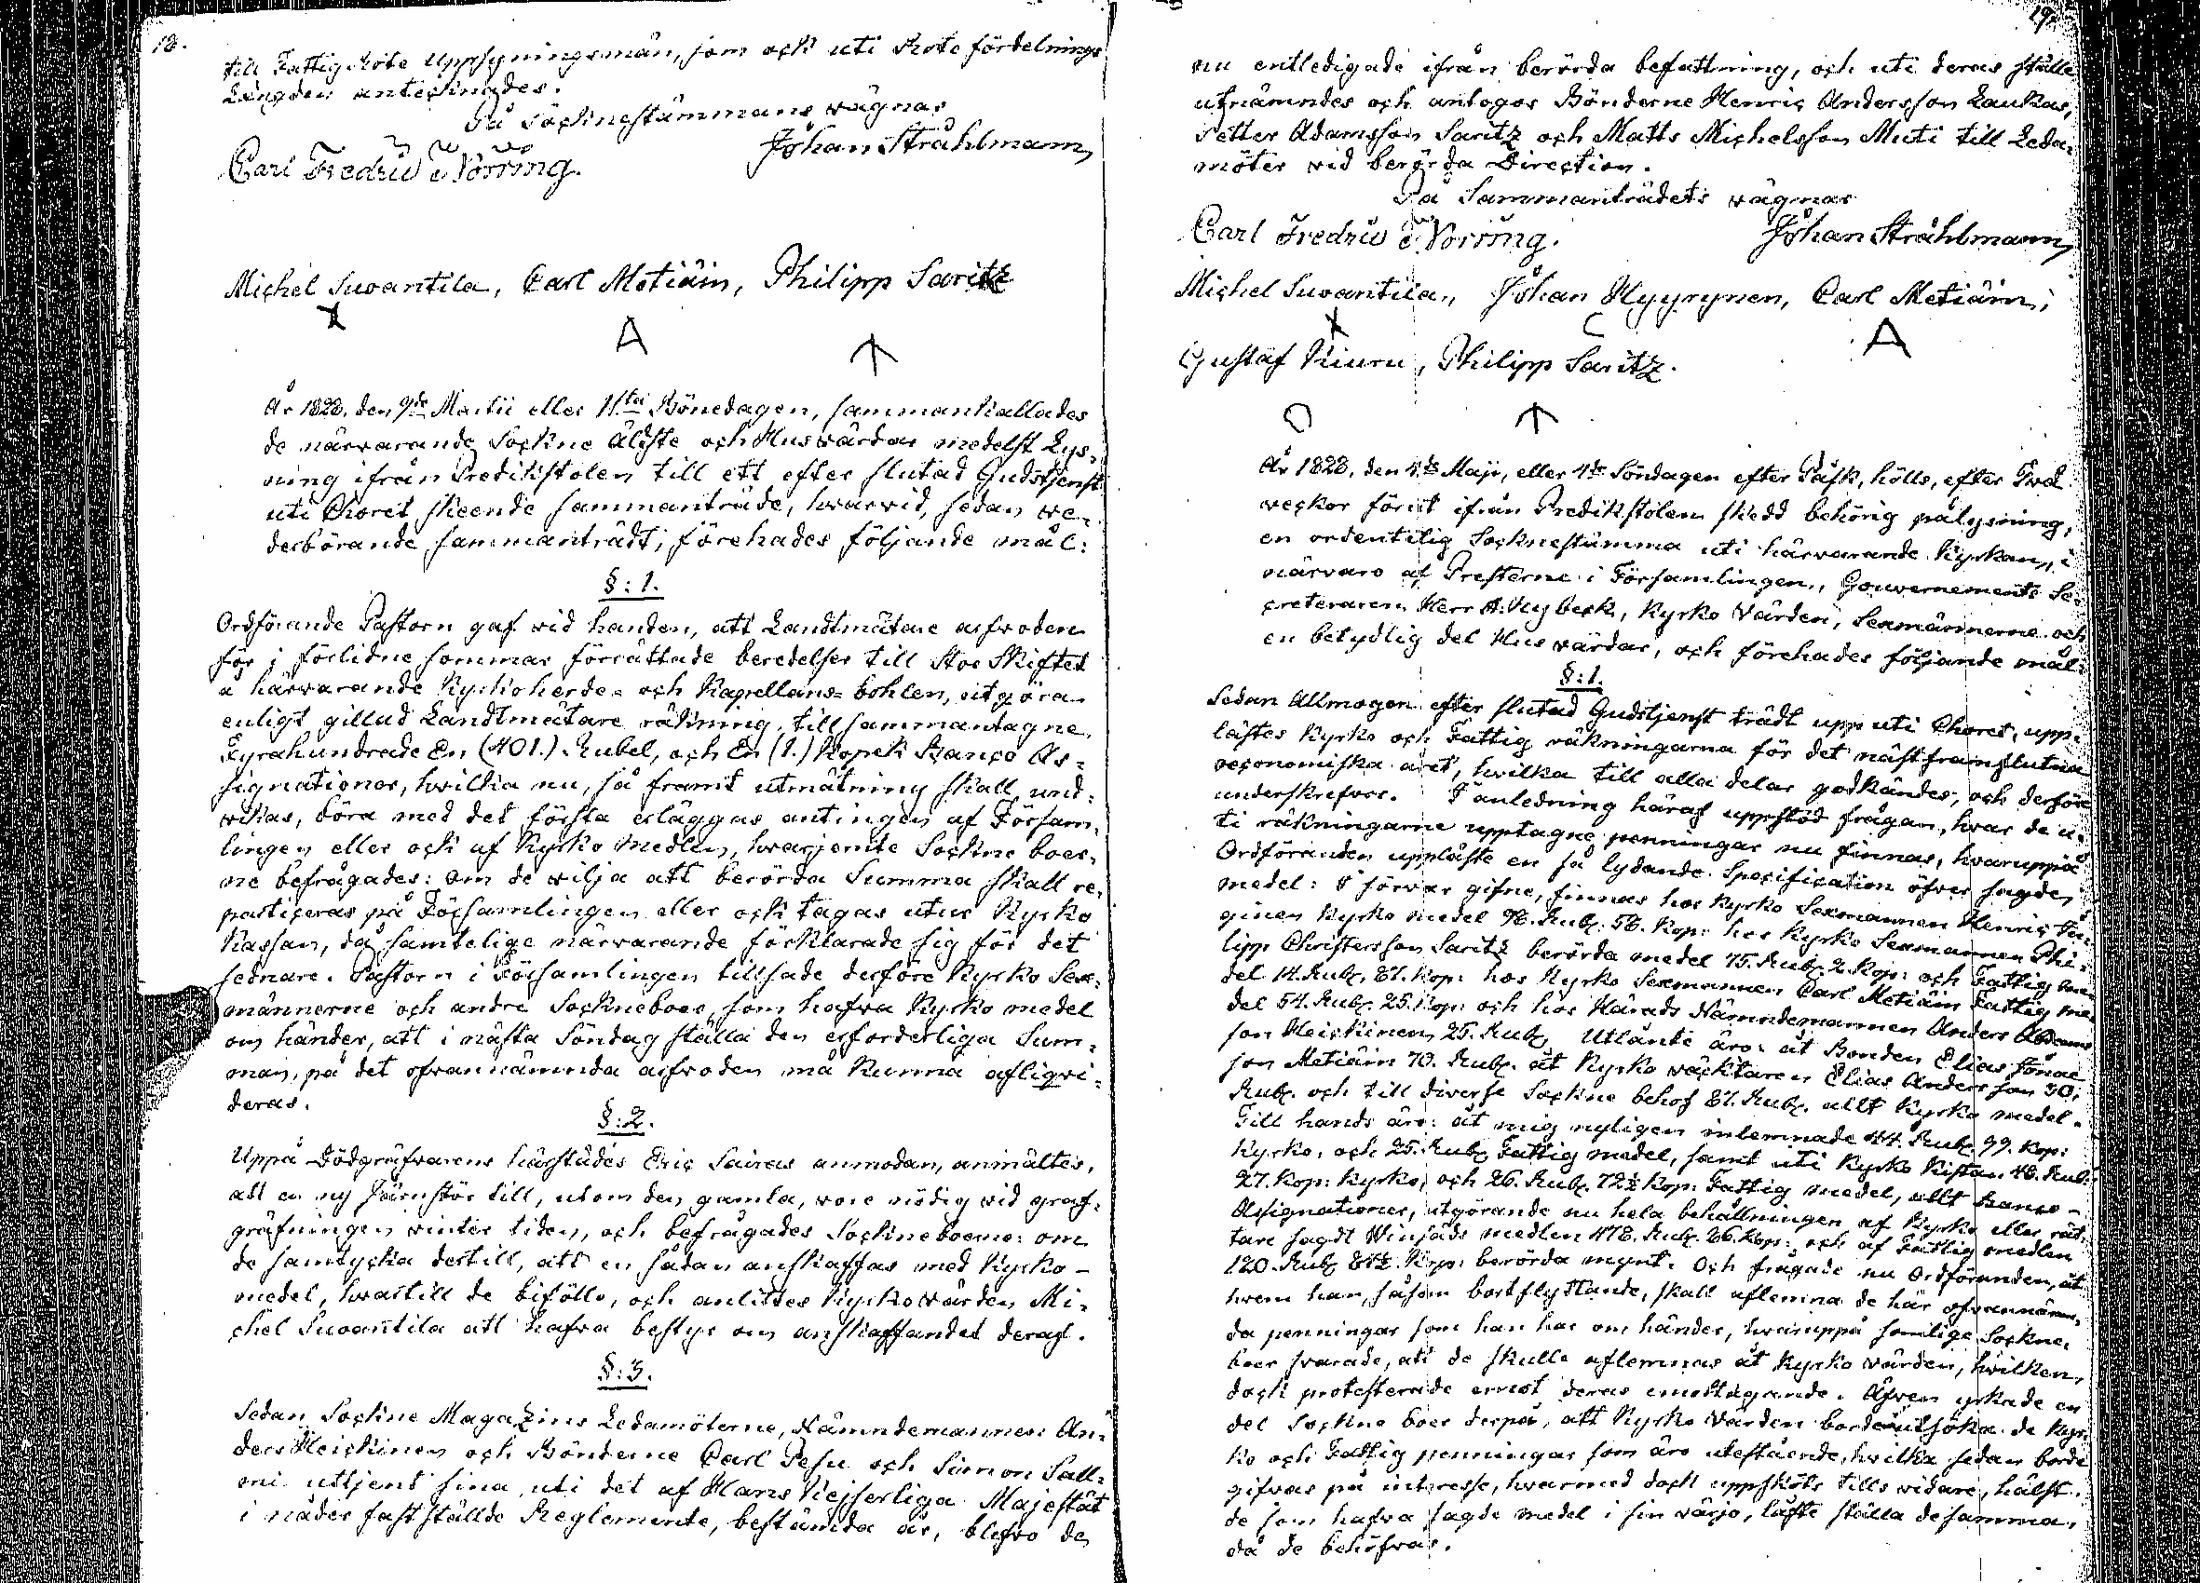 18.
till Fattig Rote Uppsyningsmän, som ock uti Rote fördelnings
Längden antecknades.
På Socknestämmans wägnar
Carl Fredric v Nörring. Johan Stråhlmann,
Michel Suvantila, Carl Metiäin, Philipp Saritz
År 1828. den 9de Martii eller 1sta Bönedagen, sammankallades
de närwarande Sockne Äldste och Huswärdar medelst Lys-
ning ifrån Predikstolen till ett efter slutad Gudstjenst
uti Choret skeende sammanträde, hwarwid, sedan we-
derbörande sammanträdt, förehades följande mål:
§: 1.
Ordförande Pastorn gaf wid handen, att Landtmätare arfwoden
för i förlidne sommar förrättade beredelser till Stor Skiftet
å härwarande Kyrkoherde- och Kapellans- bohlen, utgöra
enligt gillad Landtmätare räkning, tillsammantagne
Fyrahundrade En (401.) Rubel, och En (1.) Kopek Banco As-
signationer, hwilka nu, så framt utmätning skall und-
wikas, böra med det första erläggas antingen af Försam-
lingen eller ock af Kyrko medlen, hwarjemte Sockne boer-
ne befrågades: om de wilja att berörda Summa skall re-
particeras på Församlingen eller ock tagas utur Kyrko
Kassan, då samtelige närwarande förklarade sig för det
sednare. Pastorn i Församlingen tillsade derföre Kyrko Sex-
männerne och andre Sockneboer, som hafwa Kyrko medel
om händer, att i nästa Söndag ställa den erforderliga Sum-
man, på det ofwannämnda arfwoden må kunna afliqvi-
deras.
§: 2.
Uppå Dödgräfwarens härstädes Eric Sairas anmodan, anmältes,
att en ny Järnstör till, utom den gamla, wore nödig wid graf-
gräfningen winter tiden, och befrågades Sockneboerne: om
de samtycka dertill, att en sådan anskaffas med Kyrko-
medel, hwartill de biföllo, och anlittes Kyrkowärden Mi-
chel Suvantila att hafwa bestyr om anskaffandet deraf.
§: 3.
Sedan Sockne Magazins Ledamöterne, Nämndemannen An-
ders Heickinen och Bönderne Carl Pesu och Simon Sall-
mi uttjent sina, uti det af Hans Kejserliga Majestät
i nåder fastställde Reglemente, bestämda år, blefwo de
19.
nu entledigade ifrån berörda befattning, och uti deras ställe
utnämndes och antogos Bönderne Henric Andersson Laukas,
Petter Adamsson Saritz och Matts Michelsson Muti till Leda-
möter wid berörda Direction.
På Sammanträdets wägnar
Carl Fredric v Nörring. Johan Stråhlmann,
Michel Suvantila, Johan Hyyrynen, Carl Metiäin,
Gustaf Kiuru, Philipp Saritz.
År 1828. den 4de Maji, eller 4de Söndagen efter Påsk, hölls, efter Twå
weckor förut ifrån Predikstolen skedd behörig pålysning,
en ordentelig Socknestämma uti härwarande Kyrkan, i
närwaro af Presterne i Församlingen, Gouvernements Se-
creteraren Herr A. Nybeck, Kyrko Wärden, Sexmännerne och
en betydlig del Huswärdar, och förehades följande mål:
§: 1.
Sedan Allmogen efter slutad Gudstjenst trädt upp uti Choret, upp-
lästes Kyrko och Fattig räkningarna för det näst framflutna
oeconomiska året, hwilka till alla delar godkändes, och derföre
underskrefwos. I anledning häraf uppstod frågan, hwar de u-
ti räkningarne upptagne penningar nu finnas, hwaruppå
Ordföranden uppläste en så lydande Specification öfwer sagde
medel: I förwar gifne, finnas hos Kyrko Sexmannen Henric
ginen Kyrko medel 98. Rub. 58. Kop: hos Kyrko Sexmannen Phi-
lipp Christersson Saritz berörda medel 75. Rub. 2. Kop: och Fattig me-
del 14. Rub. 81. Kop: hos Kyrko Sexmannen Carl Metiäin Fattig me-
del 54. Rub. 25. Kop: och hos Härads Nämndemannen Anders Adams-
son Heickinen 25. Rub. Utlånte äro: åt Bonden Elias Jönas-
son Metiäin 70. Rub. åt Kyrko wäcktaren Elias Andersson 30.
Rub. och till diverse Sockne behof 81. Rub. allt Kyrko medel.
Till hands äro: åt mig nyligen inlemnade 44. Rub. 99. Kop:
Kyrko, och 25. Rub. Fattig medel, samt uti Kyrko Kistan 18. Rub.
27. Kop: Kyrko, och 26. Rub. 72½ Kop: Fattig medel, allt Banco-
Assignationer, utgörande nu hela behållningen af Kyrko eller rät-
tare sagdt Winsäds medlen 478. Rub. 26. Kop: och af Fattig medlen
120. Rub. 81½. Kop: berörda mynt. Och frågade nu Ordföranden, åt
hwem han, såsom bortflyttande, skall aflemna de här ofwannämn-
da penningar som han har om händer, hwaruppå somlige Sockne-
boer swarade, att de skulle aflemnas åt Kyrko wärden, hwilken,
dock protesterade emot deras emottagande. Äfwen yrkade en
del Sockne boer derpå, att Kyrko Wärden borde utsöka de Kyr-
ko och Fattig penningar som äro utestående, hwilka sedan borde
gifwas på interesse, hwarmed dock uppsköts tills widare, hälst
de som hafwa sagde medel i sin wärjo, läfte ställa desamma,
då de behöfwas.